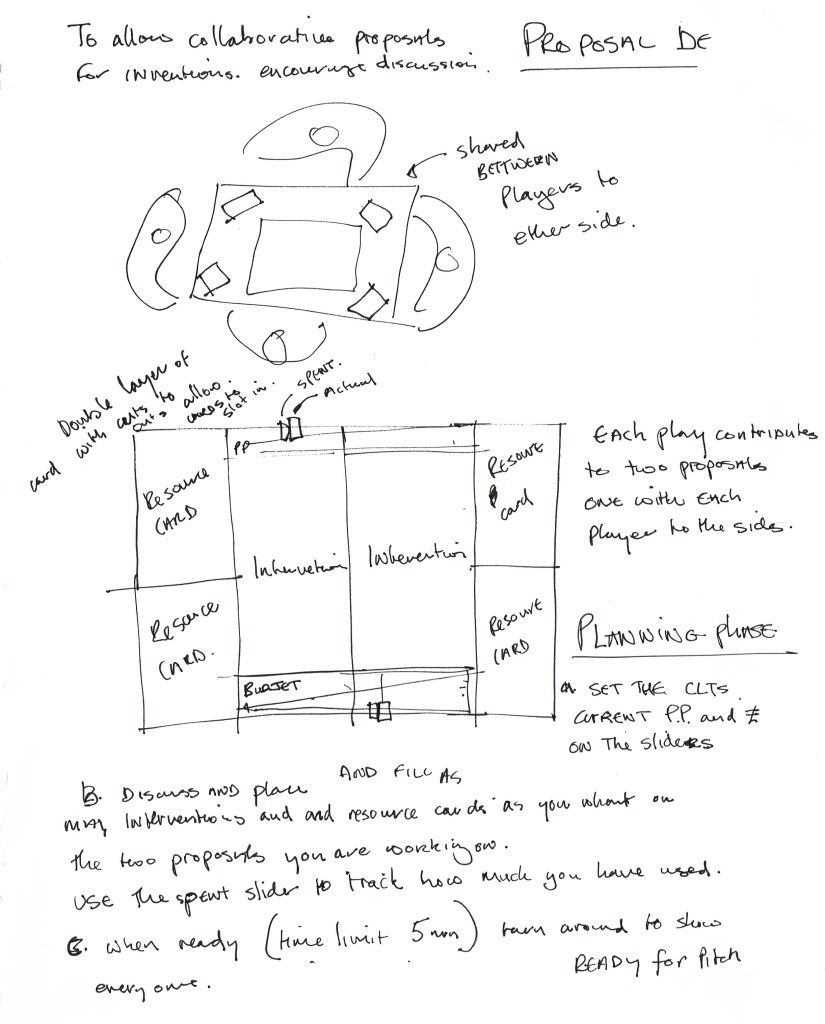 To allow collaborative proposals
for inventions. encourage discussion.
PROPOSAL DE
shared
BETTWERN
Players to
ether side.
Double layer of
card with cuts to
cuts to allow
cards to
slot in.
SPENT.
Actual
PP
Resource
CARD
Resoure
card
Intervetion
Intervention
Resource
CARD.
Resoure
CARD
BUDJET
Each play contributes
to two proposals
ONE with Each
player to the sides.
PLANNING Phase
A SET THE CLTS
CURRENT P.P. and £
ON THE SlideRS
B. Discuss AND place AND FILL AS
many Interventions and and resource cards as you whant on
the two proposals you are working on.
USE The spent slider to track how much you have used.
C. When ready (time limit 5 min) turn around to show
everyone.
READY for Pitch